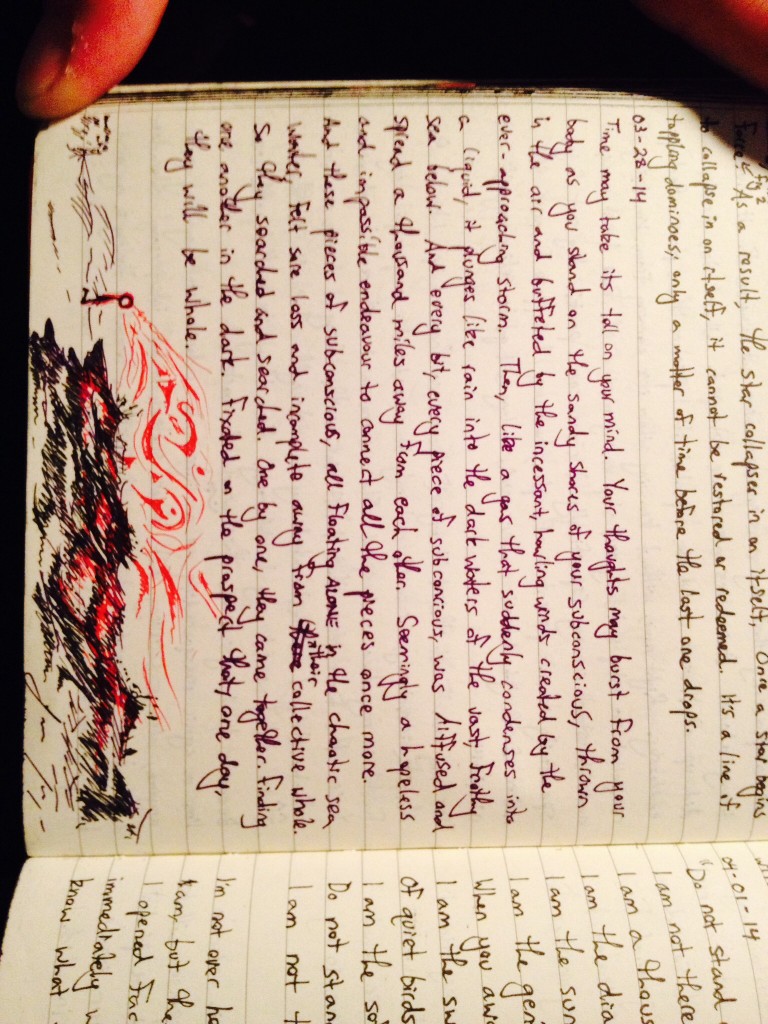 Force². As a result, the star collapses in on itself, Once a star begins
to collapse in on itself, it cannot be restored or redeemed. It's a line of
toppling dominoes; only a matter of time before the last one drops.
03-28-14
Time may take its toll on your mind. Your thoughts may burst from your
body as you stand on the sandy shores of your subconscious, thrown
in the air and buffeted by the incessant, howling winds created by the
ever-approaching storm. Then, like a gas that suddenly condenses into
a liquid, it plunges like rain into the dark waters of the vast, frothy
sea below. And every bit, every piece of subconcious, was diffused and
spread a thousand miles away from each other. Seemingly a hopeless
and impossible endeavour to connect all the pieces once more.
And these pieces of subconscious, all floating ALONE in the chaotic sea
waters, felt sure loss and incomplete away from their collective whole.
So they searched and searched. One by one, they came together. Finding
one another in the dark. Fixated on the prospect that, one day,
they will be whole.
04-01-14
"Do not stand
I am not there
I am a thous
I am the dia
I am the sun
I am the gen
When you awa
I am the sw
of quiet birds
I am the so
Do not stan
I am not t
I'm not over he
but the
I opened Fac
immediately w
know what